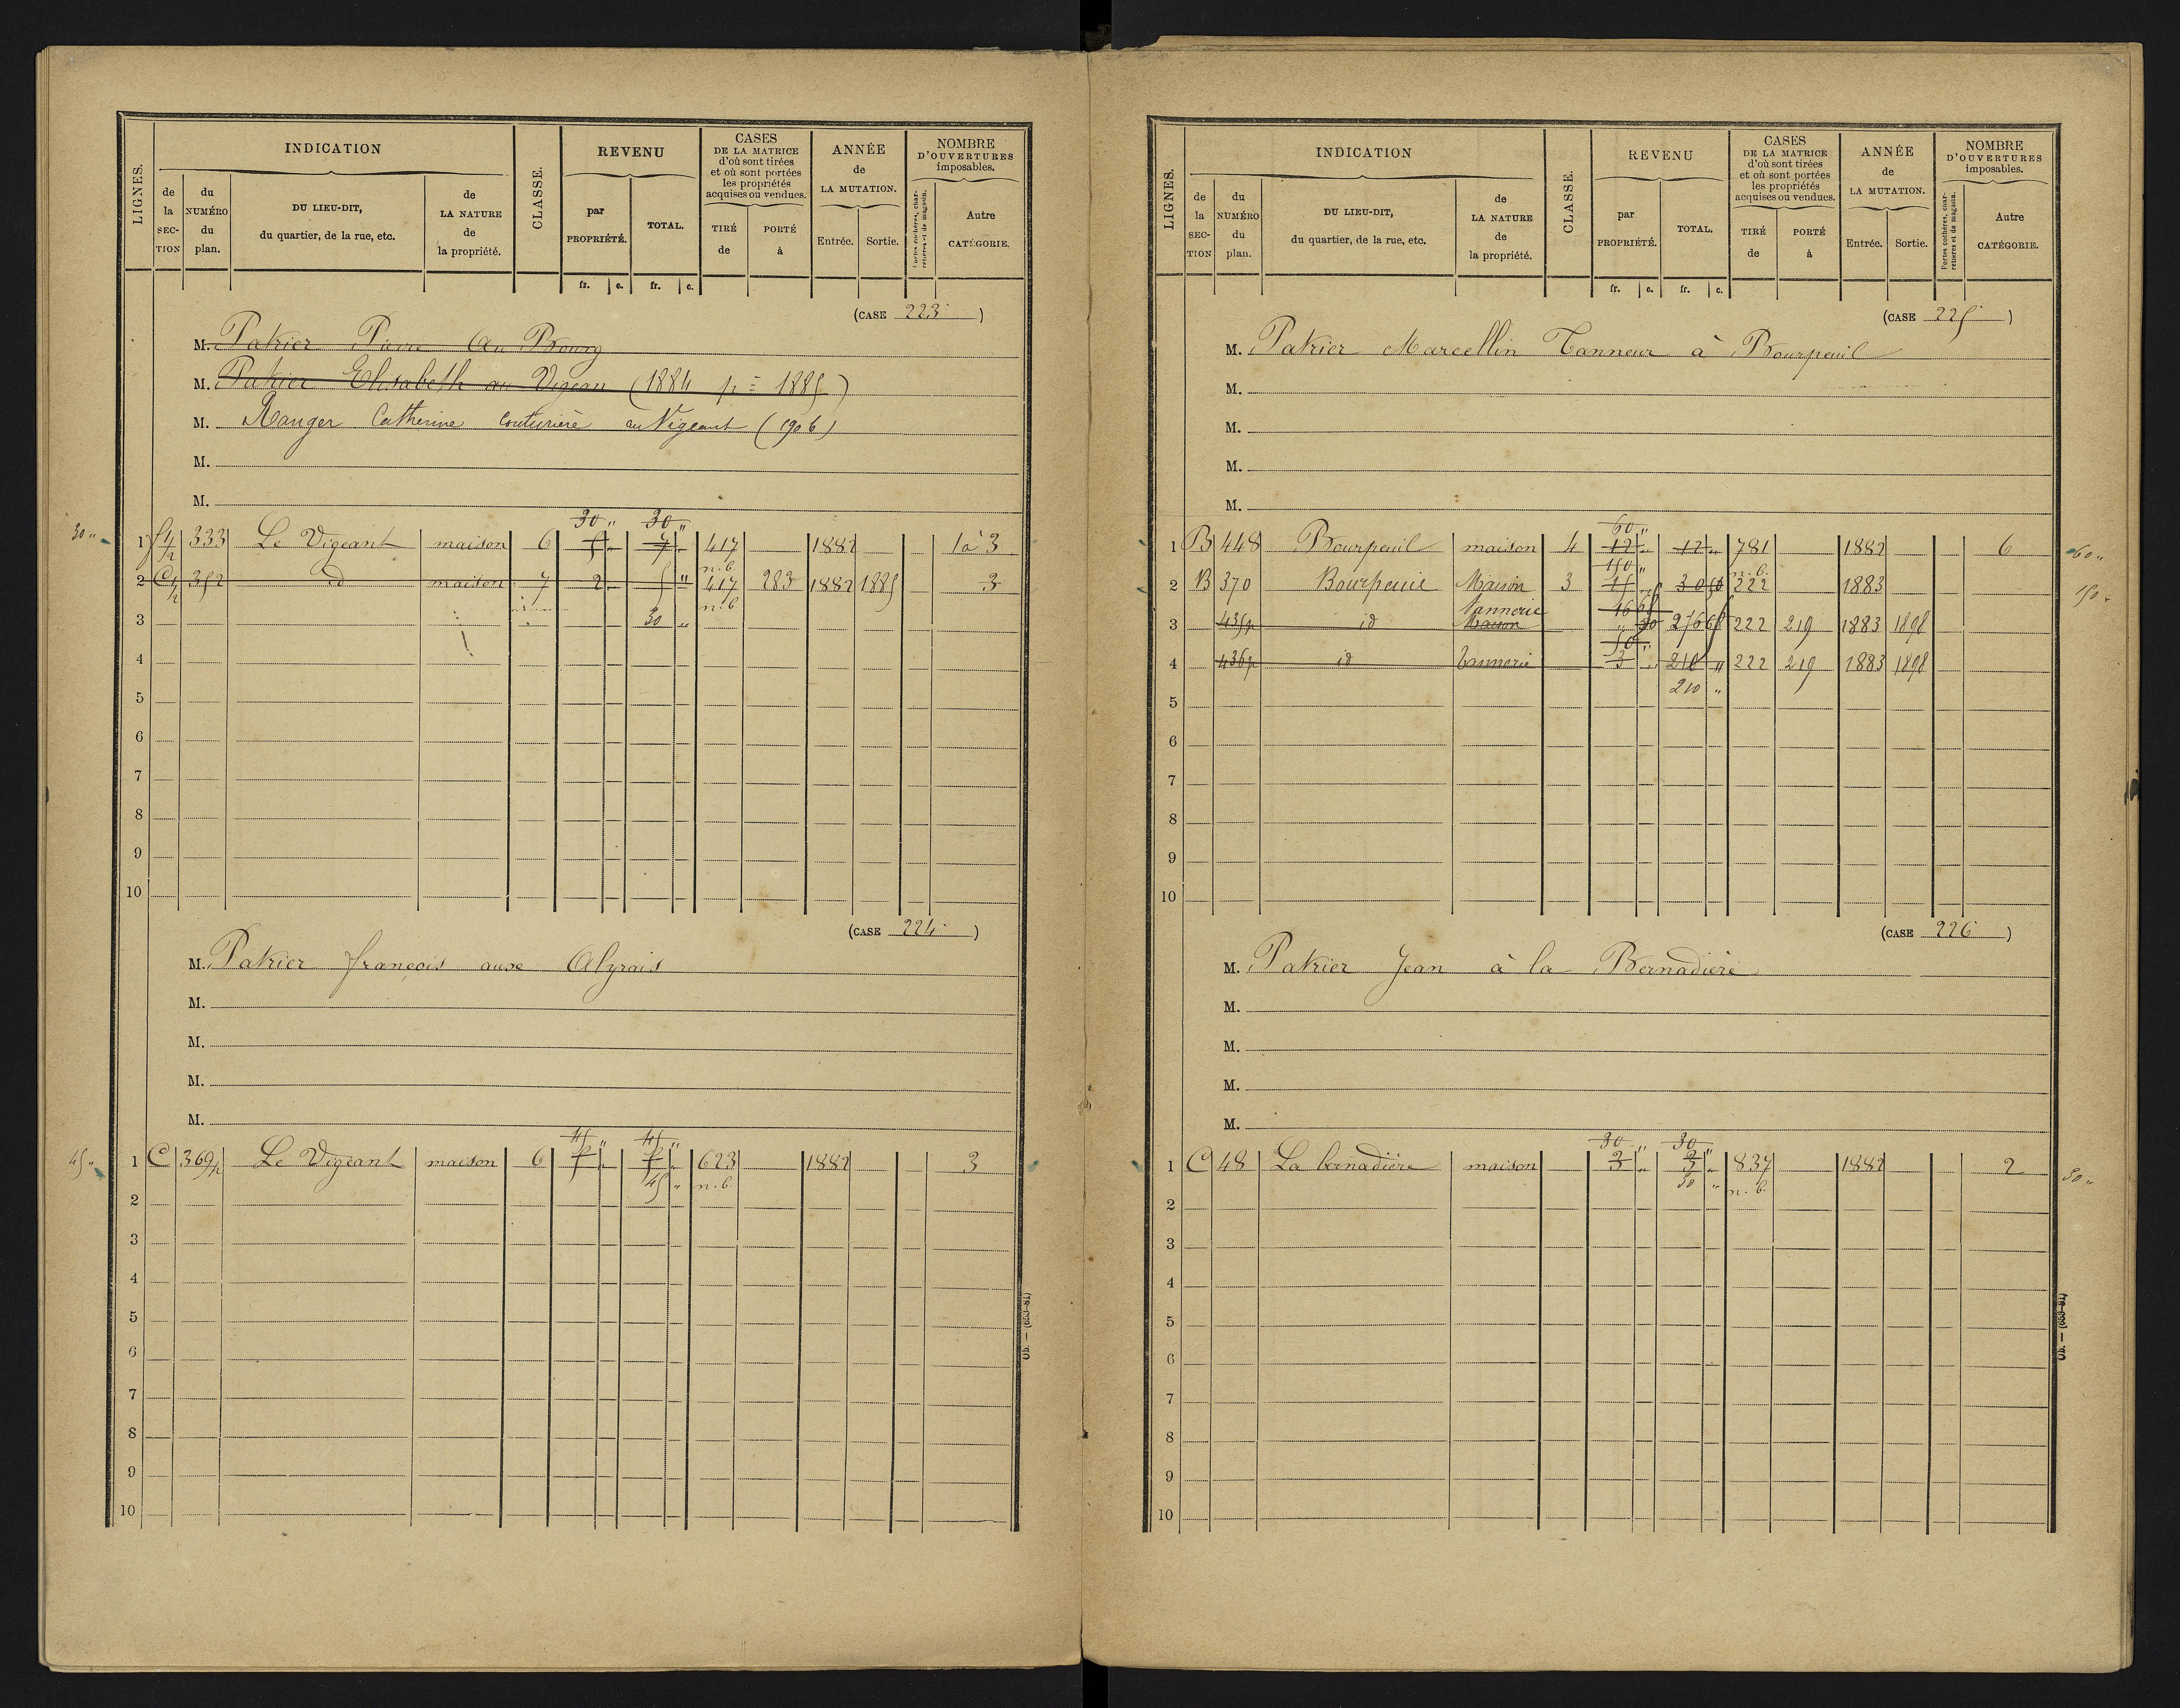 LIGNES.
INDICATION
de la SECTION
du NUMÉRO du plan.
DU LIEU-DIT, du quartier, de la rue, etc.
de LA NATURE de la propriété.
CLASSE.
REVENU
par PROPRIÉTÉ.
TOTAL.
CASES DE LA MATRICE d'où sont tirées et où sont portées les propriétés acquises ou vendues.
TIRÉ de
PORTÉ à
ANNÉE de LA MUTATION.
Entrée.
Sortie.
NOMBRE D'OUVERTURES imposables.
Portes cochères, charretières et de magasin.
Autre CATÉGORIE.
fr. c. fr. c.
(CASE 223)
M. Patrier Pierre Au Bourg
M. Patrier Elisabeth au Vigean (1884 pr 1885)
M. Ranger Catherine couturière au Vigeant (1906)
M.
M.
30 " 30 "
30 " 1 333 Le Vigeant maison 6 5 " 7 " 417 1882 1 à 3
n.b.
2 C 1/2 352 id maison 7 2 " 5 " 417 283 1882 1885 3
n.b.
3 30 "
4
5
6
7
8
9
10
(CASE 224)
M. Patrier françois aux Alzrais
M.
M.
M.
M.
45 " 45 "
45 " 1 C 369p Le Vigeant maison 6 623 1882 3
45 " n.b.
2
3
4
5
6
7
8
9
10
Ob. — (653-81)
LIGNES.
INDICATION
de la SECTION
du NUMÉRO du plan.
DU LIEU-DIT, du quartier, de la rue, etc.
de LA NATURE de la propriété.
CLASSE.
REVENU
par PROPRIÉTÉ.
TOTAL.
CASES DE LA MATRICE d'où sont tirées et où sont portées les propriétés acquises ou vendues.
TIRÉ de
PORTÉ à
ANNÉE de LA MUTATION.
Entrée.
Sortie.
NOMBRE D'OUVERTURES imposables.
Portes cochères, charretières et de magasin.
Autre CATÉGORIE.
fr. c. fr. c.
(CASE 225)
M. Patrier Marcellin Tanneur à Bourpeuil
M.
M.
M.
M.
60 "
1 B 448 Bourpeuil maison 4 12 " 12 " 781 1882 6 60 "
150 " n.b.
2 B 370 Bourpeuil Maison 3 15 " 30 50 222 1883 150 "
Tannerie 16 66
3 435p id Maison 276 66 222 219 1883 1898
50 "
4 436p id Tannerie 3 " 210 " 222 219 1883 1898
210 "
5
6
7
8
9
10
(CASE 226)
M. Patrier Jean à la Bernadière
M.
M.
M.
M.
30 " 30 "
1 C 48 La bernadière maison 3 " 3 " 837 1882 2 30 "
30 " n.b.
2
3
4
5
6
7
8
9
10
Ob. — (653-81)